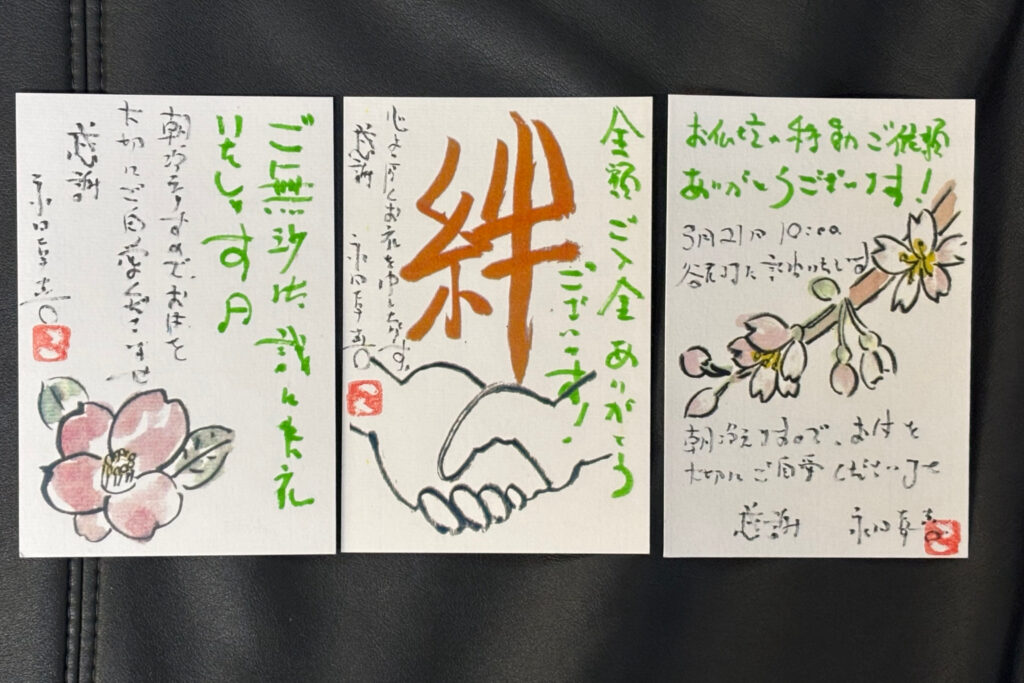 ご無沙汰誠に失礼
朝冷えますので、お体を
大切にご自愛くださいませ
感謝
全額ご入金ありがとう
ございます!
絆
心より厚くお礼を申し上げます。
感謝
お仏壇の移動ご依頼
ありがとうございます!
3月21日 10:00
いたします
朝冷えますので、お体を
大切にご自愛くださいませ
感謝